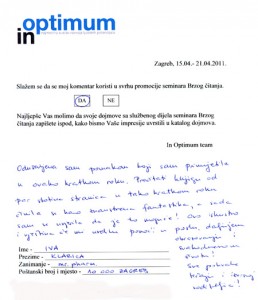 in optimum
Zagreb, 15.04.- 21.04.2011.
Slažem se da se moj komentar koristi u svrhu promocije seminara Brzog čitanja.
DA NE
Najljepše Vas molimo da svoje dojmove sa službenog dijela seminara Brzog
čitanja zapišete ispod, kako bismo Vaše impresije uvrstili u katalog dojmova.
In Optimum team
Oduševljena sam pomakom koji sam primijetila
u ovako kratkom roku. Pročitati knjigu od
par stotina stranica u tako kratkom roku
činila se kao znanstvena fantastika, a sada
sam se uvjerila da je to moguće! Ovo iskustvo
i vještina će mi uvelike pomoći u poslu, daljnjem
obrazovanju i
svakodnevnom
životu!
Sve pohvale
Ime - IVA
Prezime - KLARICA
Zanimanje - mr. pharm.
Poštanski broj i mjesto - 10 000 ZAGREB